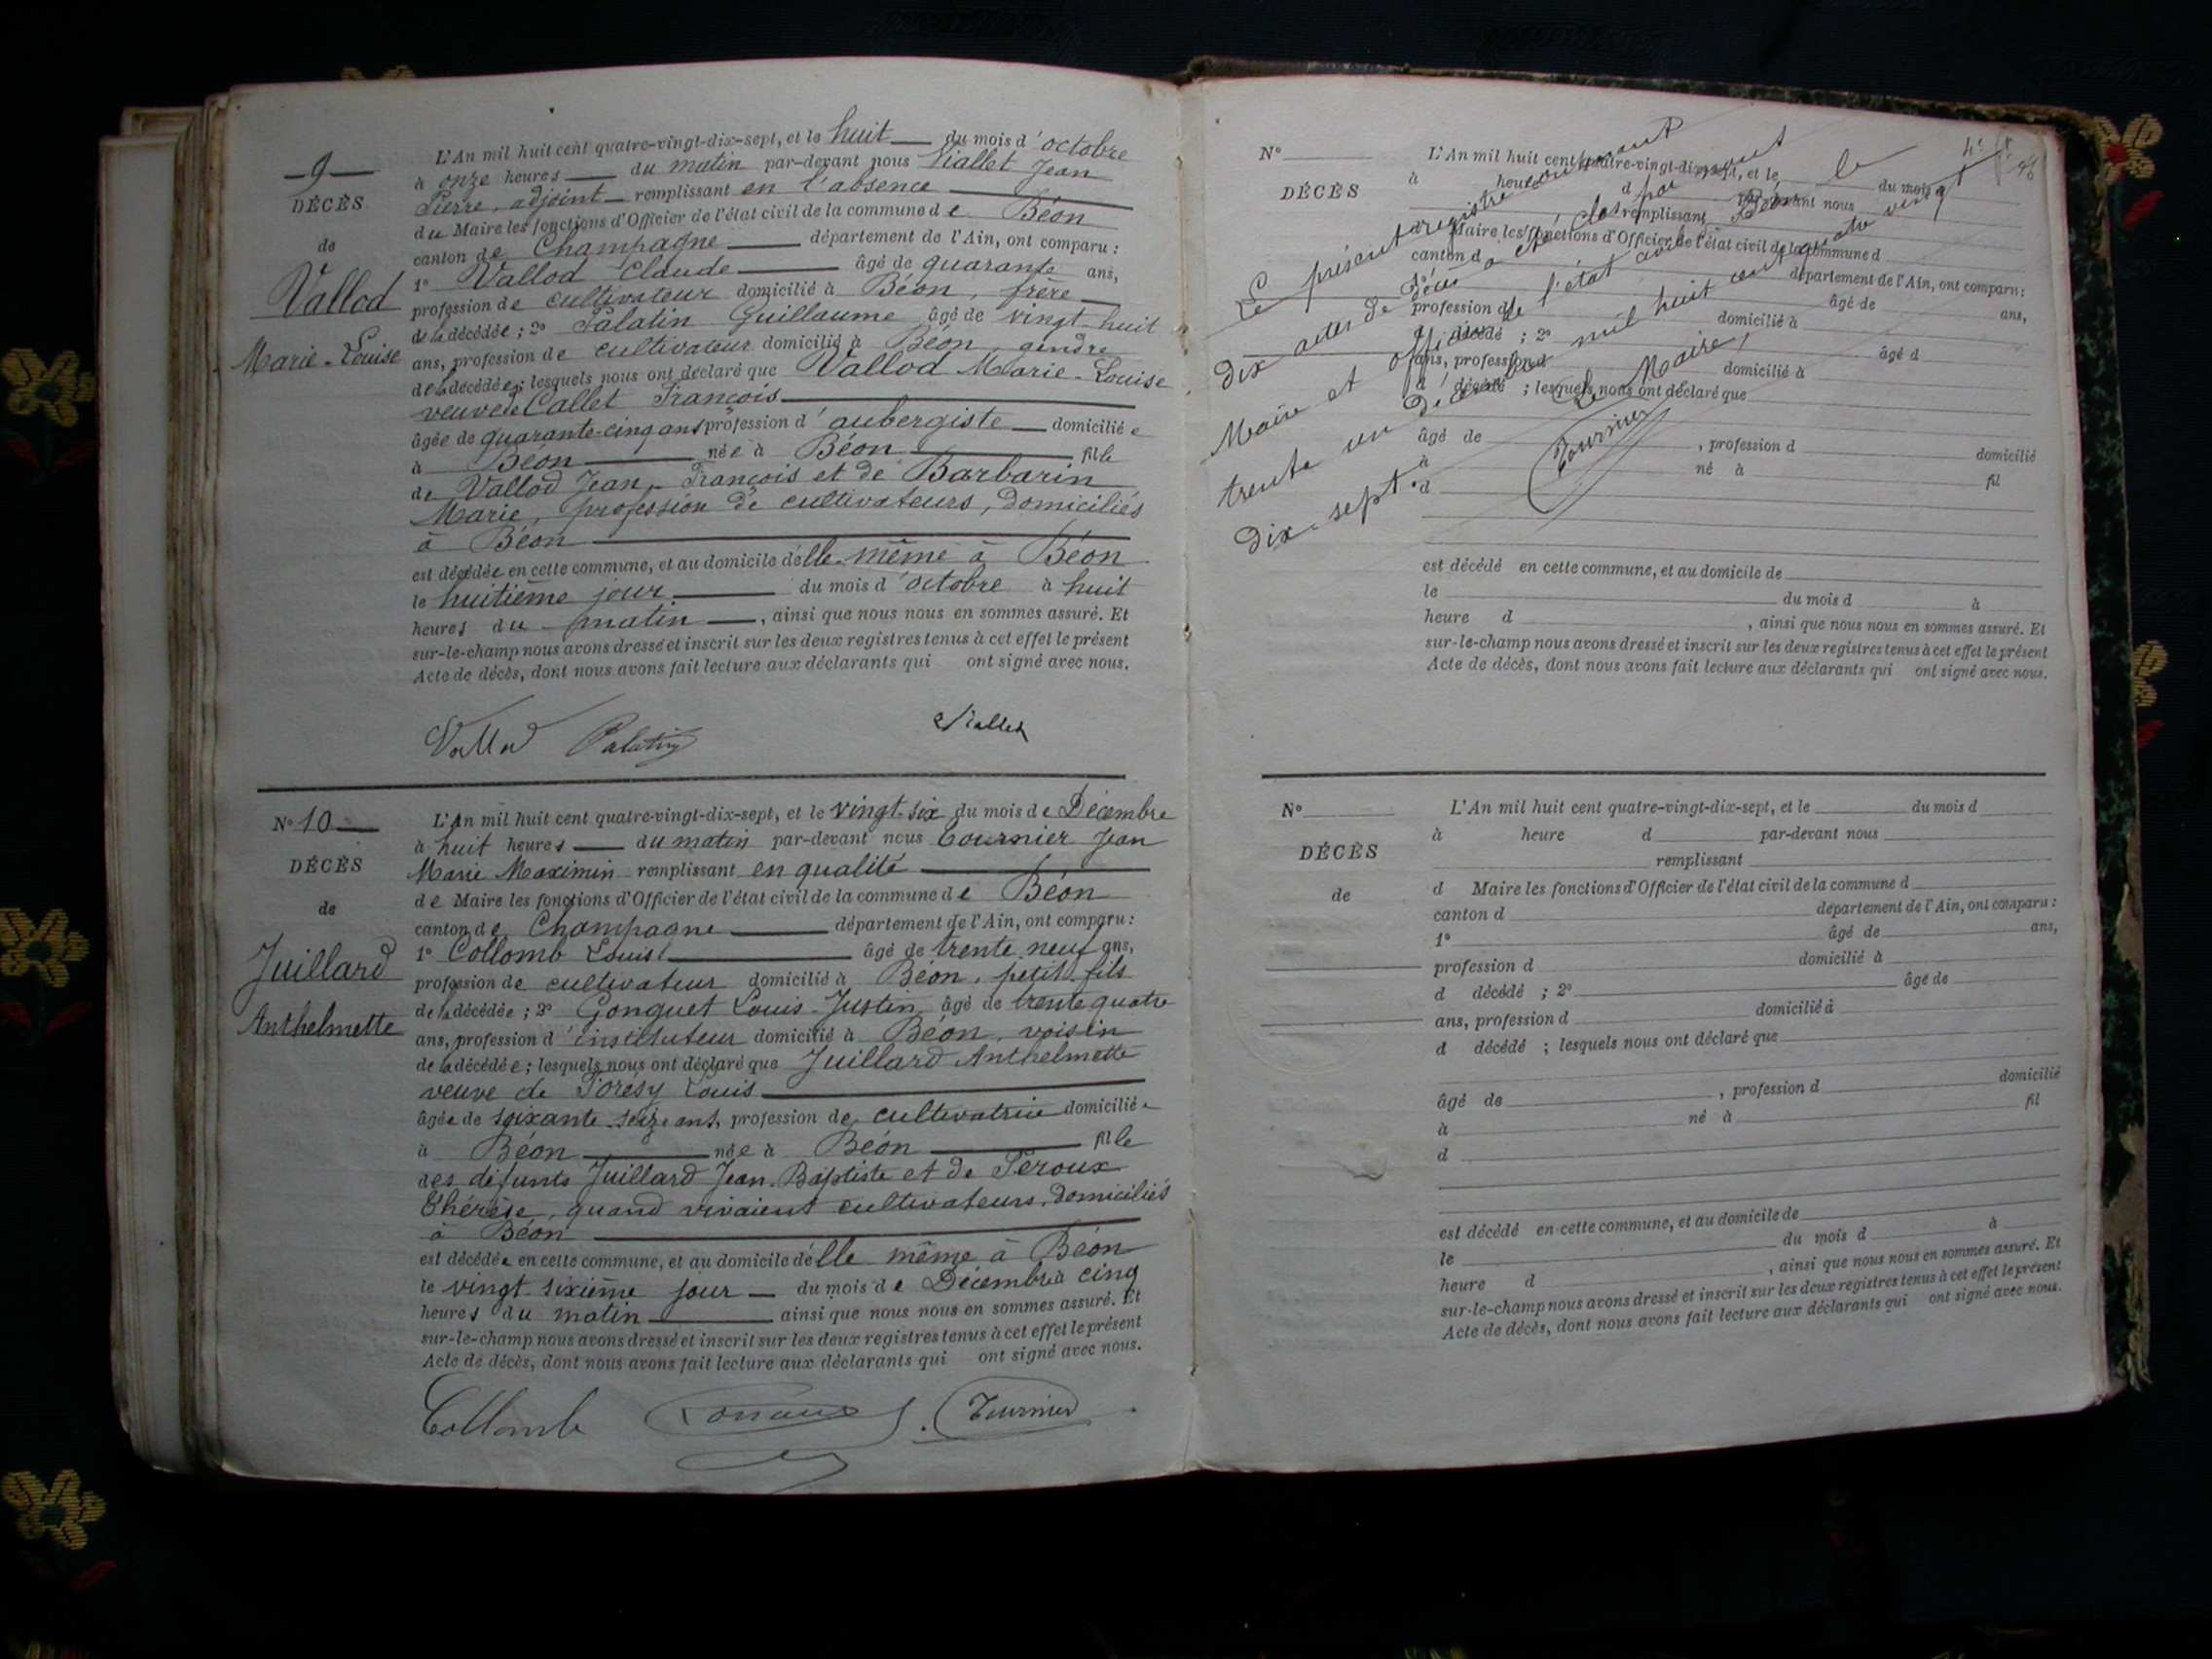 9
DÉCÈS
de
Vallod
Marie-Louise
L'An mil huit cent quatre-vingt-dix-sept, et le huit du mois d'octobre
à onze heures du matin par-devant nous Viallet Jean
Pierre, adjoint remplissant en l'absence
du Maire les fonctions d'Officier de l'état civil de la commune de Béon
canton de Champagne département de l'Ain, ont comparu :
1° Vallod Claude âgé de quarante ans,
profession de cultivateur domicilié à Béon, frère
de la décédée ; 2° Palatin Guillaume âgé de vingt-huit
ans, profession de cultivateur domicilié à Béon, gendre
de la décédée ; lesquels nous ont déclaré que Vallod Marie-Louise
veuve de Callet François
âgée de quarante-cinq ans profession d'aubergiste domiciliée
à Béon née à Béon fille
de Vallod Jean-François et de Barbarin
Marie, profession de cultivateurs, domiciliés
à Béon
est décédée en cette commune, et au domicile d'elle-même à Béon
le huitième jour du mois d'octobre à huit
heures du matin, ainsi que nous nous en sommes assuré. Et
sur-le-champ nous avons dressé et inscrit sur les deux registres tenus à cet effet le présent
Acte de décès, dont nous avons fait lecture aux déclarants qui ont signé avec nous.
Vallod Palatin Viallet
N° 10
DÉCÈS
de
Juillard
Anthelmette
L'An mil huit cent quatre-vingt-dix-sept, et le vingt-six du mois de Décembre
à huit heures du matin par-devant nous Tournier Jean
Marie Maximin remplissant en qualité
de Maire les fonctions d'Officier de l'état civil de la commune de Béon
canton de Champagne département de l'Ain, ont comparu :
1° Collomb Louis âgé de trente neuf ans,
profession de cultivateur domicilié à Béon, petit-fils
de la décédée ; 2° Gonguet Louis-Justin âgé de trente quatre
ans, profession d'instituteur domicilié à Béon, voisin
de la décédée ; lesquels nous ont déclaré que Juillard Anthelmette
veuve de Louis
âgée de soixante-seize ans, profession de cultivatrice domiciliée
à Béon née à Béon fille
des défunts Juillard Jean-Baptiste et de Peroux
Thérèse, quand vivaient cultivateurs, domiciliés
à Béon
est décédée en cette commune, et au domicile d'elle même à Béon
le vingt-sixième jour du mois de Décembre à cinq
heures du matin ainsi que nous nous en sommes assuré. Et
sur-le-champ nous avons dressé et inscrit sur les deux registres tenus à cet effet le présent
Acte de décès, dont nous avons fait lecture aux déclarants qui ont signé avec nous.
Collomb Tournier
Le présent registre contenant
dix actes de décès a été clos par nous
Maire et officier de l'état civil de Béon le
trente un décembre mil huit cent quatre vingt
dix-sept.
Le Maire,
Tournier
N°
DÉCÈS
L'An mil huit cent quatre-vingt-dix-sept, et le du mois d
à heure d par-devant nous
remplissant
d Maire les fonctions d'Officier de l'état civil de la commune d
canton d département de l'Ain, ont comparu :
âgé de ans,
profession d domicilié à
d décédé ; 2° âgé d
ans, profession d domicilié à
d décédé ; lesquels nous ont déclaré que
âgé de , profession d domicilié
à né à fil
d
est décédé en cette commune, et au domicile de
le du mois d à
heure d , ainsi que nous nous en sommes assuré. Et
sur-le-champ nous avons dressé et inscrit sur les deux registres tenus à cet effet le présent
Acte de décès, dont nous avons fait lecture aux déclarants qui ont signé avec nous.
N°
DÉCÈS
de
L'An mil huit cent quatre-vingt-dix-sept, et le du mois d
à heure d par-devant nous
remplissant
d Maire les fonctions d'Officier de l'état civil de la commune d
canton d département de l'Ain, ont comparu :
1° âgé de ans,
profession d domicilié à
d décédé ; 2° âgé de
ans, profession d domicilié à
d décédé ; lesquels nous ont déclaré que
âgé de , profession d domicilié
à né à fil
d
est décédé en cette commune, et au domicile de
le du mois d à
heure d , ainsi que nous nous en sommes assuré. Et
sur-le-champ nous avons dressé et inscrit sur les deux registres tenus à cet effet le présent
Acte de décès, dont nous avons fait lecture aux déclarants qui ont signé avec nous.